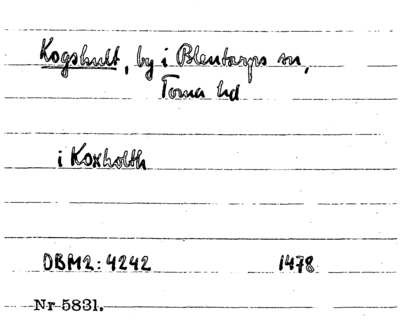 Kogshult, by i Blentarps sn,
Torna hd
i Koxholth
DBM2:4242 1478
Nr 5831.